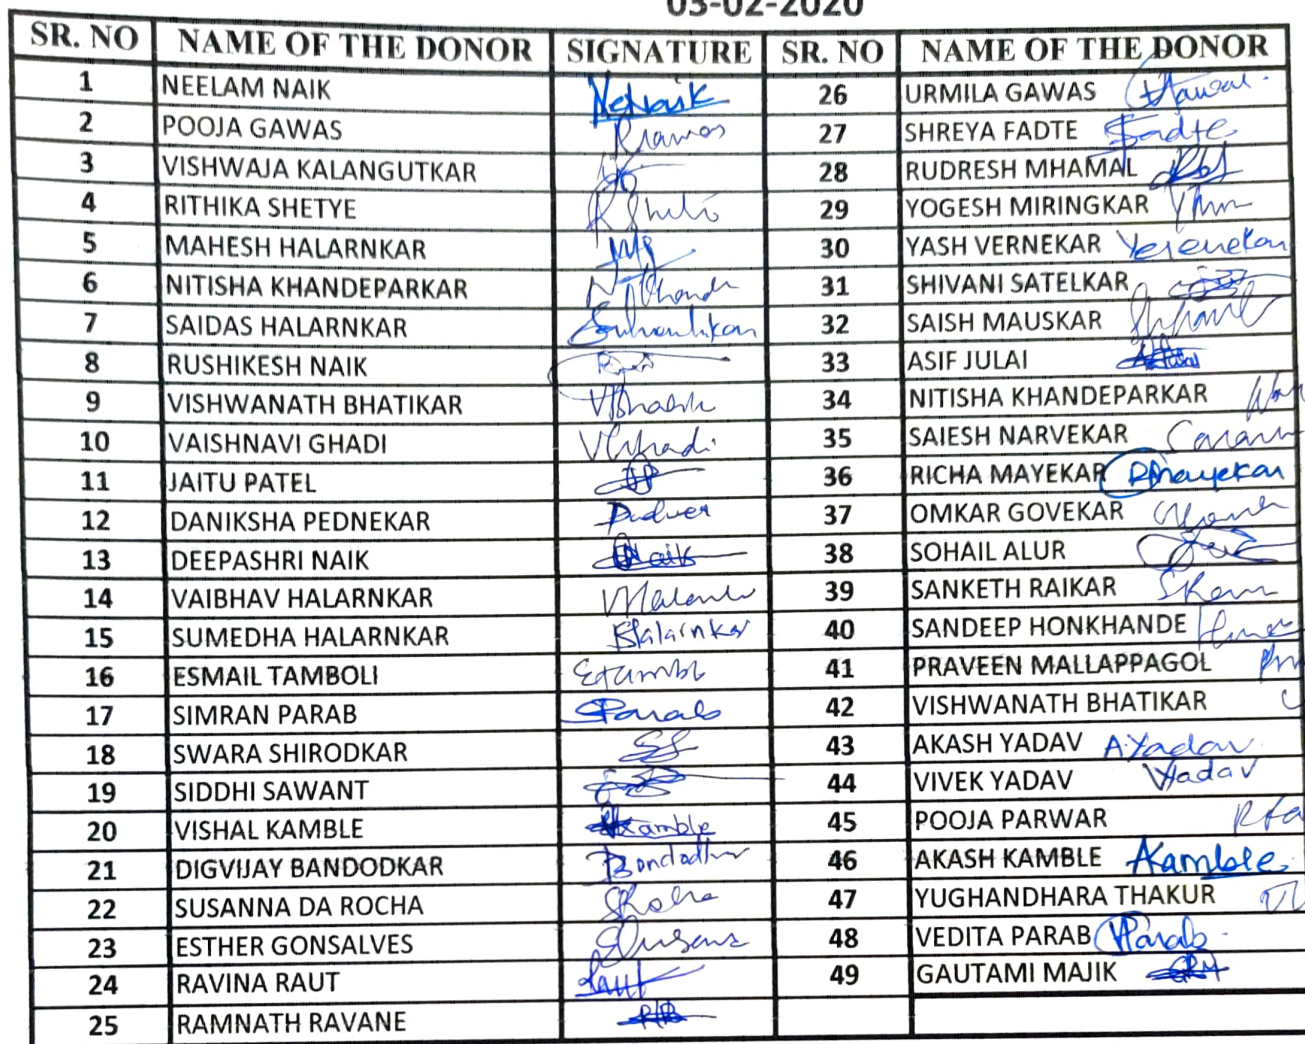 03-02-2020
SR. NO NAME OF THE DONOR SIGNATURE SR. NO NAME OF THE DONOR
1 NEELAM NAIK 26 URMILA GAWAS
2 POOJA GAWAS 27 SHREYA FADTE Sfadte
3 VISHWAJA KALANGUTKAR 28 RUDRESH MHAMAL
4 RITHIKA SHETYE 29 YOGESH MIRINGKAR
5 MAHESH HALARNKAR 30 YASH VERNEKAR
6 NITISHA KHANDEPARKAR 31 SHIVANI SATELKAR
7 SAIDAS HALARNKAR 32 SAISH MAUSKAR
8 RUSHIKESH NAIK 33 ASIF JULAI
9 VISHWANATH BHATIKAR 34 NITISHA KHANDEPARKAR
10 VAISHNAVI GHADI 35 SAIESH NARVEKAR
11 JAITU PATEL 36 RICHA MAYEKAR RMayekar
12 DANIKSHA PEDNEKAR 37 OMKAR GOVEKAR
13 DEEPASHRI NAIK 38 SOHAIL ALUR
14 VAIBHAV HALARNKAR 39 SANKETH RAIKAR
15 SUMEDHA HALARNKAR 40 SANDEEP HONKHANDE
16 ESMAIL TAMBOLI 41 PRAVEEN MALLAPPAGOL
17 SIMRAN PARAB 42 VISHWANATH BHATIKAR
18 SWARA SHIRODKAR 43 AKASH YADAV A.Yadav
19 SIDDHI SAWANT 44 VIVEK YADAV VYadav
20 VISHAL KAMBLE Kamble 45 POOJA PARWAR
21 DIGVIJAY BANDODKAR 46 AKASH KAMBLE AKamble
22 SUSANNA DA ROCHA 47 YUGHANDHARA THAKUR
23 ESTHER GONSALVES 48 VEDITA PARAB VParab
24 RAVINA RAUT 49 GAUTAMI MAJIK
25 RAMNATH RAVANE